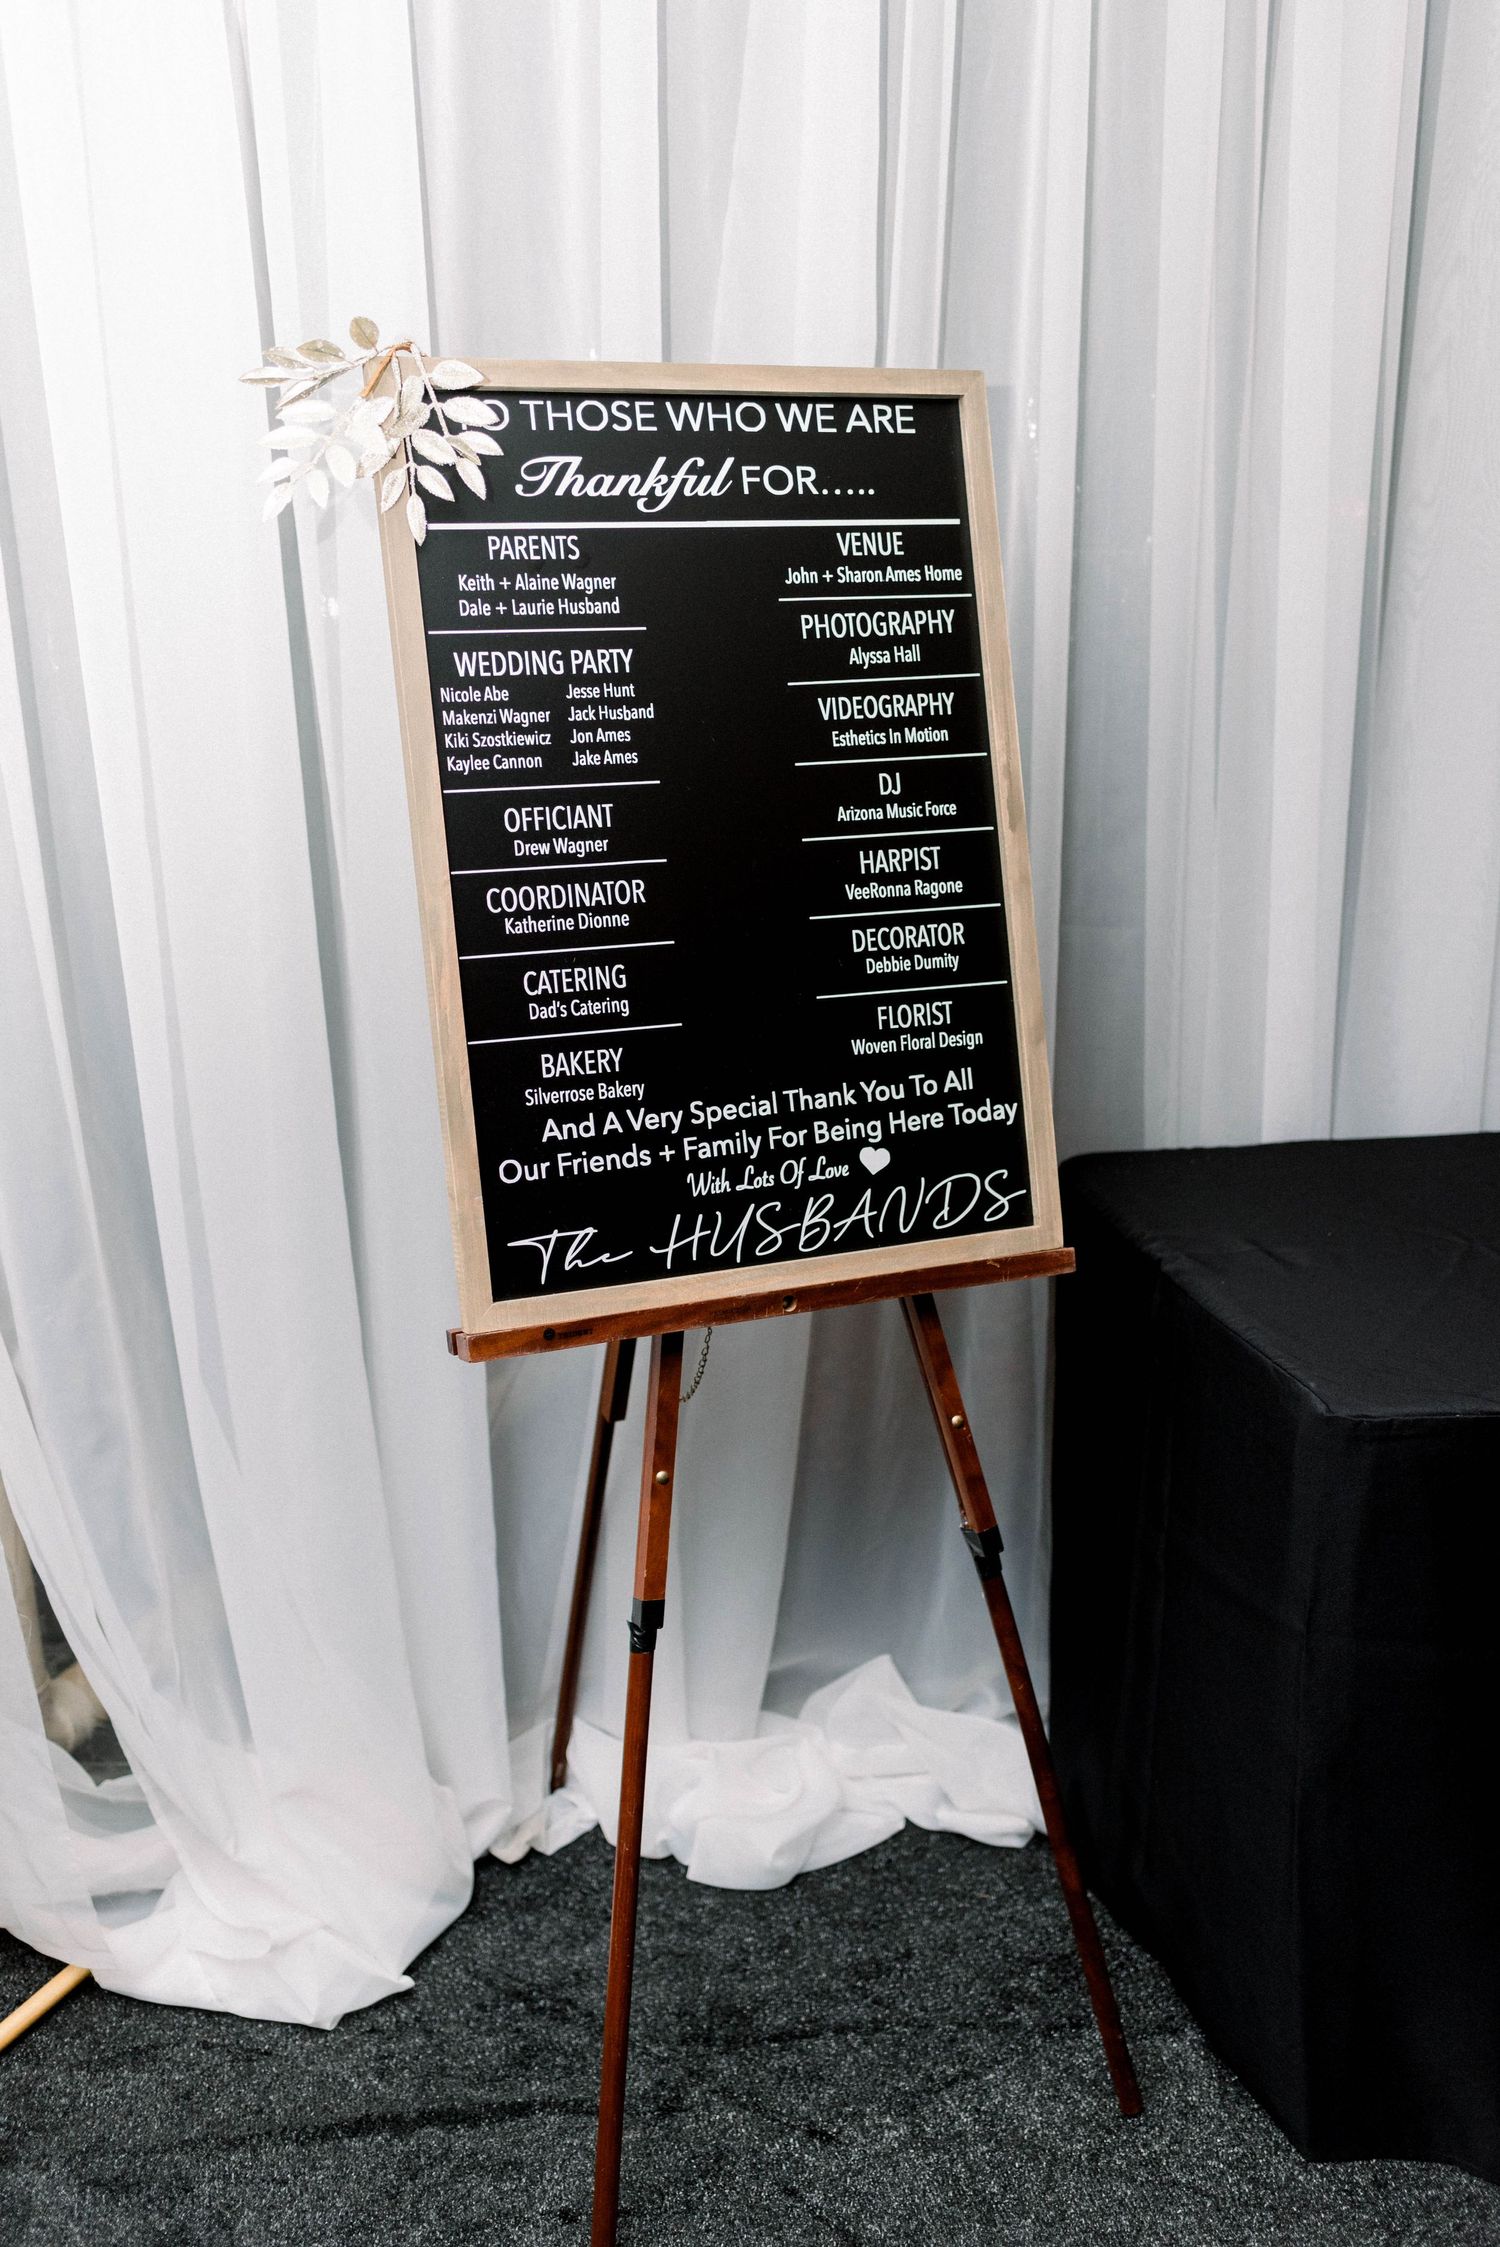 THOSE WHO WE ARE
Thankful FOR.....
PARENTS
Keith + Alaine Wagner
Dale + Laurie Husband
WEDDING PARTY
Nicole Abe Jesse Hunt
Makenzi Wagner Jack Husband
Kiki Szostkiewicz Jon Ames
Kaylee Cannon Jake Ames
OFFICIANT
Drew Wagner
COORDINATOR
Katherine Dionne
CATERING
Dad's Catering
BAKERY
Silverrose Bakery
VENUE
John + Sharon Ames Home
PHOTOGRAPHY
Alyssa Hall
VIDEOGRAPHY
Esthetics In Motion
DJ
Arizona Music Force
HARPIST
VeeRonna Ragone
DECORATOR
Debbie Dumity
FLORIST
Woven Floral Design
And A Very Special Thank You To All
Our Friends + Family For Being Here Today
With Lots Of Love
The HUSBANDS